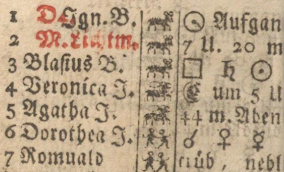 1 Ign. B. ☉ Aufgan
2 M. Lichtm. 7 U. 20 m
3 Blasius B. □ ♄ ☉
4 Veronica J. ☾ um 5 U
5 Agatha J. 44 m. Aben
6 Dorothea J. ☌ ♀ ☿
7 Romuald trüb, nebl